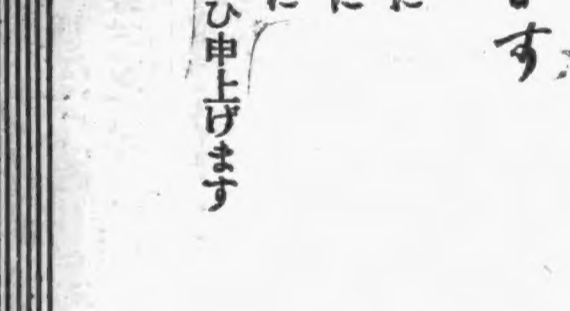 す
に
に
に
ひ申上げます